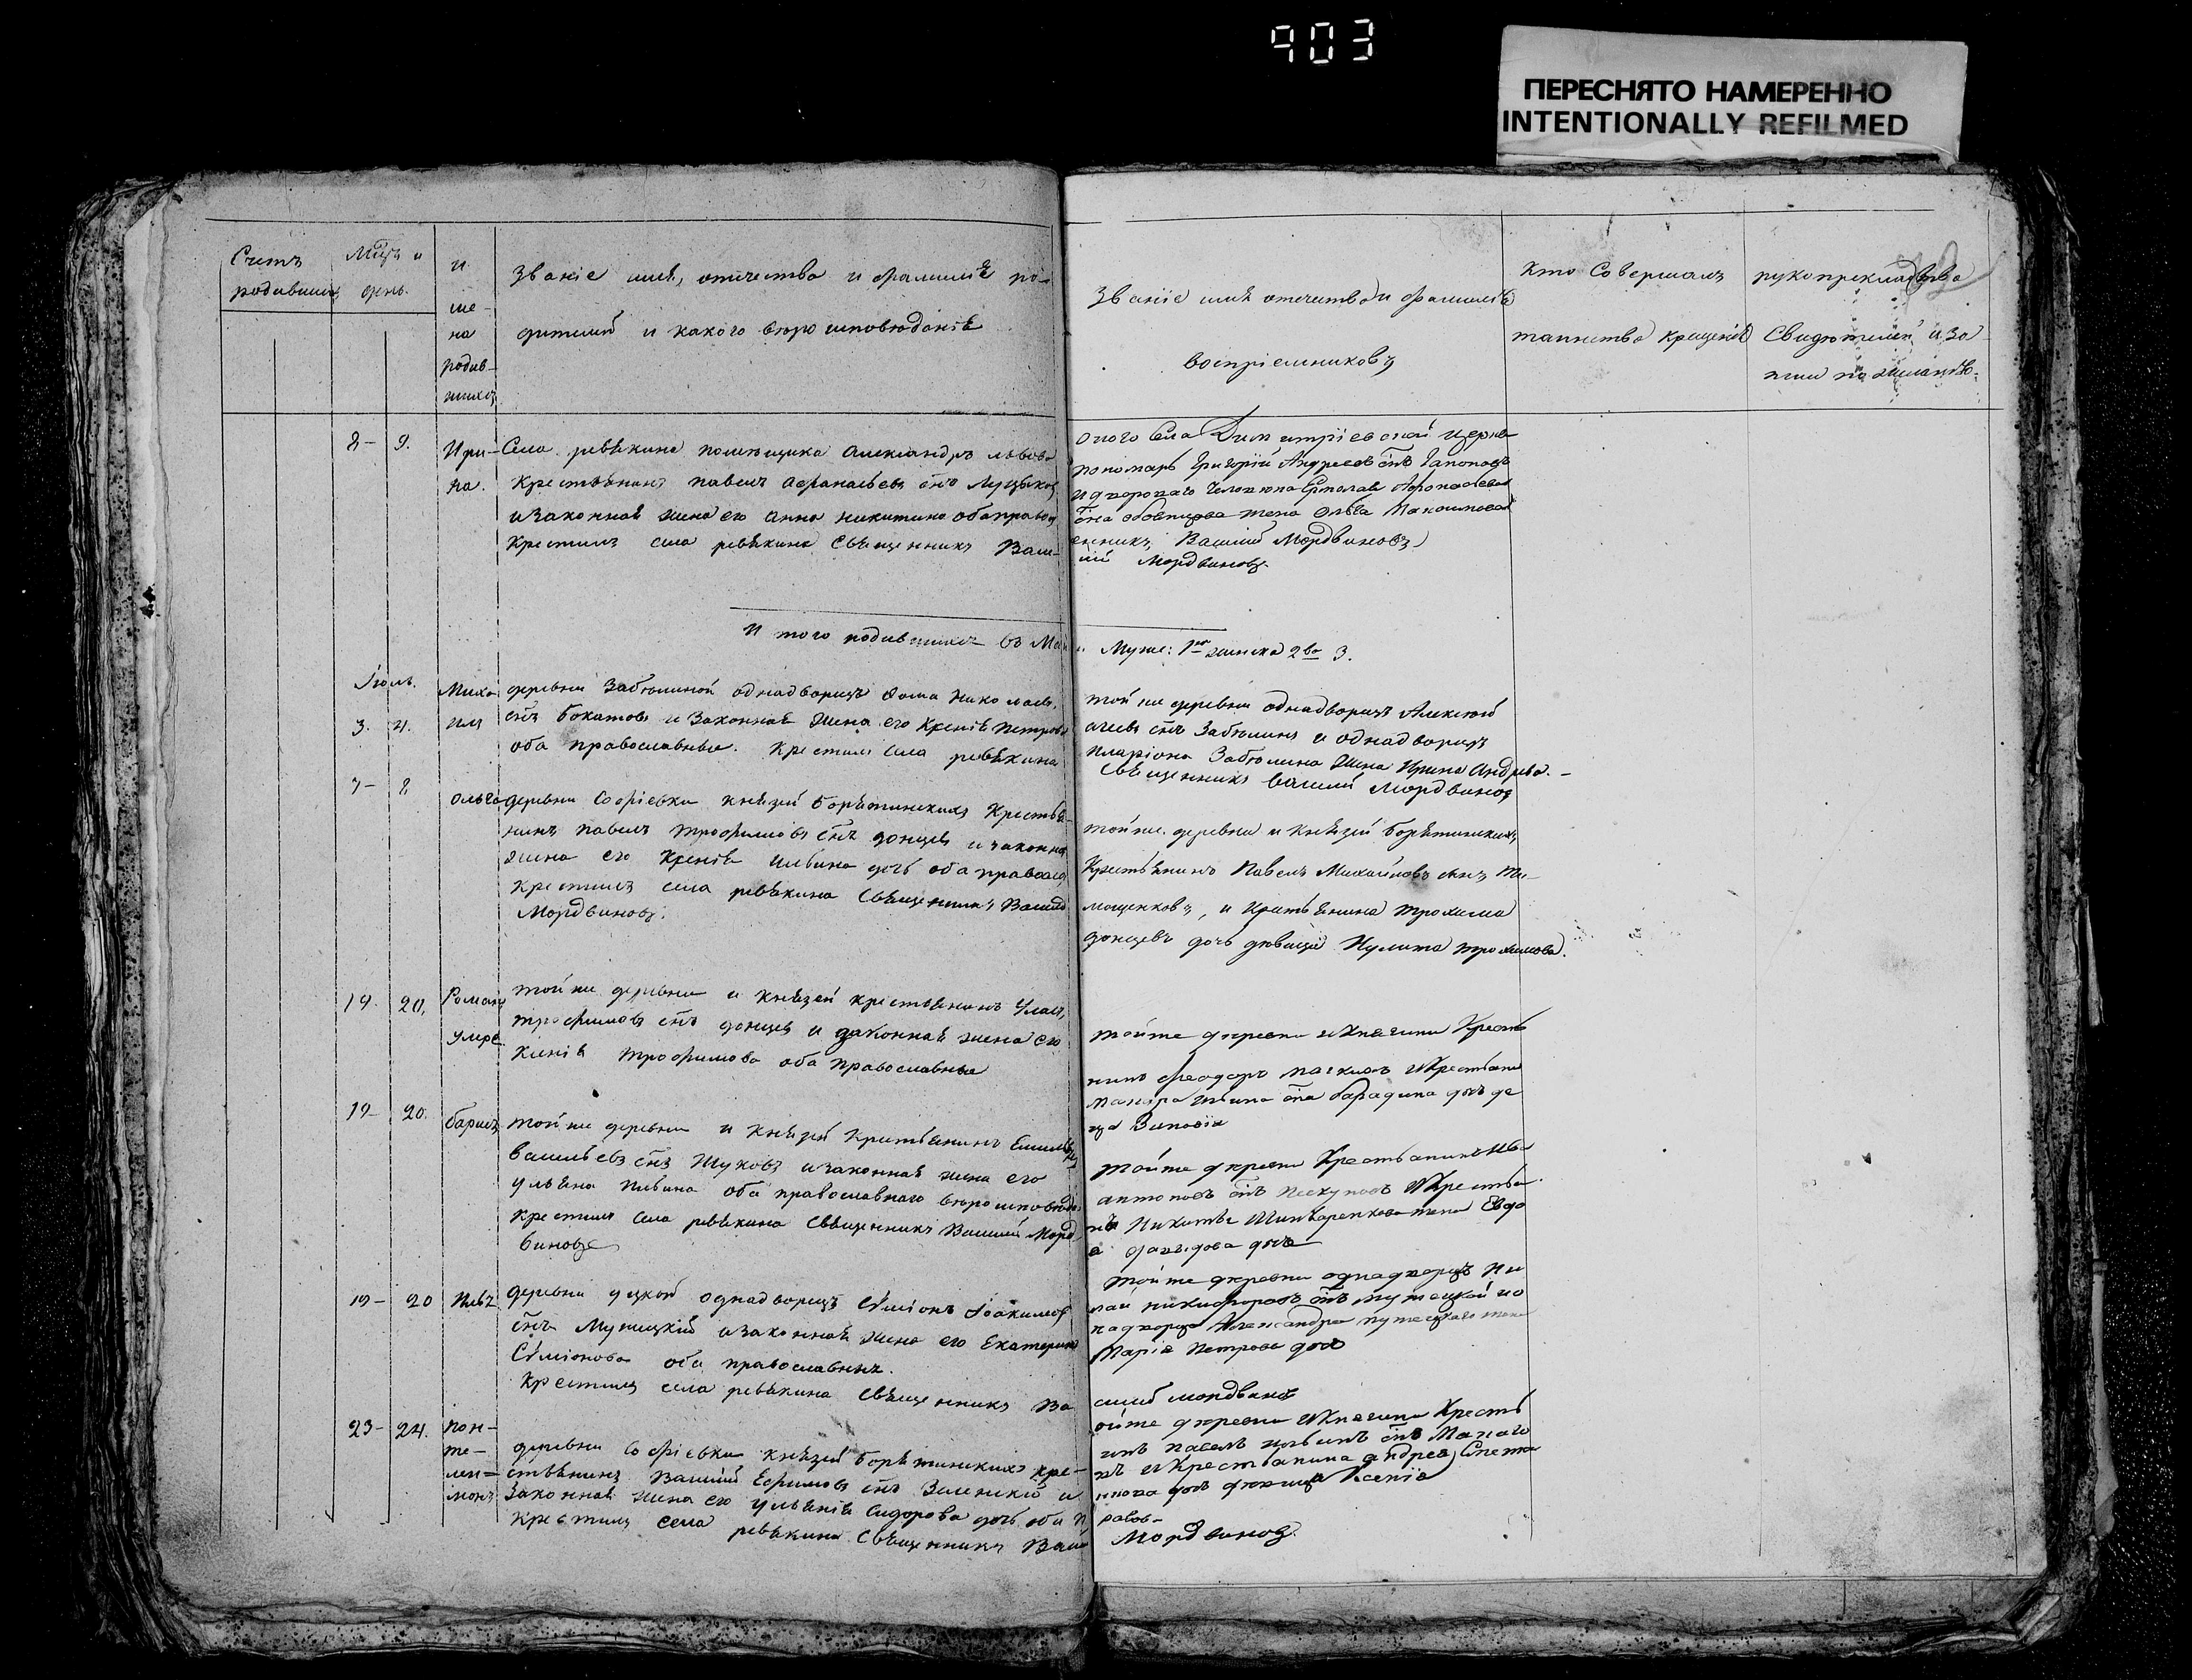 903
ПЕРЕСНЯТО НАМЕРЕННО
INTENTIONALLY REFILMED
Счетъ
родившихся
Мцъ и
день.
И
ме-
на
родив-
шихся
Званіе имя, отечество и фамилія ро-
дителей и какого вероисповеданія
Званіе имя отечество и фамилія
воспріемниковъ
кто совершалъ
таинство крещенія
рукоприкладство
свидетелей и за
писи по желанію
8- 9.
Ири-
на.
Села ревякина помещика Александръ львова
крестьянинъ павелъ афанасьевъ снъ
и законная жена его анна никитина оба правосл
Крестилъ села ревякина Священникъ Васи-
оного Села Димитріевской церкви
пономарь Григорій Андреевъ снъ Гапоновъ
жена Ольга
енникъ Василій Мордвиновъ
лій Мордвиновъ.
И того родившихся въ Маи
Муже: 1нъ женска 2во 3.
Іюль.
3. 4.
Миха
илъ
деревни Забелиной однадворецъ Фома Николаевъ
снъ Бокатовъ и законная жена его Ксенія Петрова
оба православные. Крестилъ села ревякина
той же деревни однадворецъ Алексей
снъ Забелинъ и однадворца
Иларіона Забелина жена Ирина Андрева.
Священникъ василій Мордвиновъ
7- 8
Ольга
деревни Софіевки князей Борятинскихъ крестья-
нинъ павелъ трофимовъ снъ донцевъ и законна
жена его Ксенія Ильина дочь оба правосла
крестилъ села ревякина Священникъ Васил
Мордвиновъ.
той же деревни и князей борятинскихъ
Крестьянинъ Павелъ Михайловъ сынъ Ти-
мощенковъ, и крестьянина трохима
донцевъ дочь девица Иулита трохимова.
19. 20.
Романъ
умре
той же деревни и князей крестьянинъ Уласъ
трофимовъ снъ донцевъ и законная жена его
Ксенія трофимова оба православные
тойже деревни и княгини Крестья
нинъ феодоръ
19- 20.
Борисъ
той же деревни и князей крестьянинъ Емельянъ
васильевъ снъ Жуковъ и законная жена его
ульяна Ильина оба православнаго вероисповеда
крестилъ села ревякина Священникъ Василій Морд
виновъ
тойже деревни Крестьянинъ Ива
антоновъ снъ Пискуновъ и Крестья
нъ Никиты жена Евдо
дочь
19- 20
Илья
деревни однадворецъ Сѵміонъ Іоакимовъ
снъ Мужецкій и законная жена его Екатерина
Сѵміонова оба православных.
Крестилъ села ревякина Священникъ Ва
тойже деревни однадворецъ Ни
лай никифоровъ снъ
надворца Александра жена
Марія Петрова дочь
силій мордвиновъ
23- 24.
пон-
те-
лей=
монъ
деревни Софіевки князей борятинскихъ кре-
стьянинъ Василій Ефимовъ снъ Зиленскій и
законная жена его ульянія Сидорова дочь оба п
Крестилъ села ревякина Священникъ Васи
ойже деревни и Княгини Кресть
инъ павелъ снъ
нъ и Крестьянина андрея
дочь девица Ксенія
равос-
Мордвиновъ.